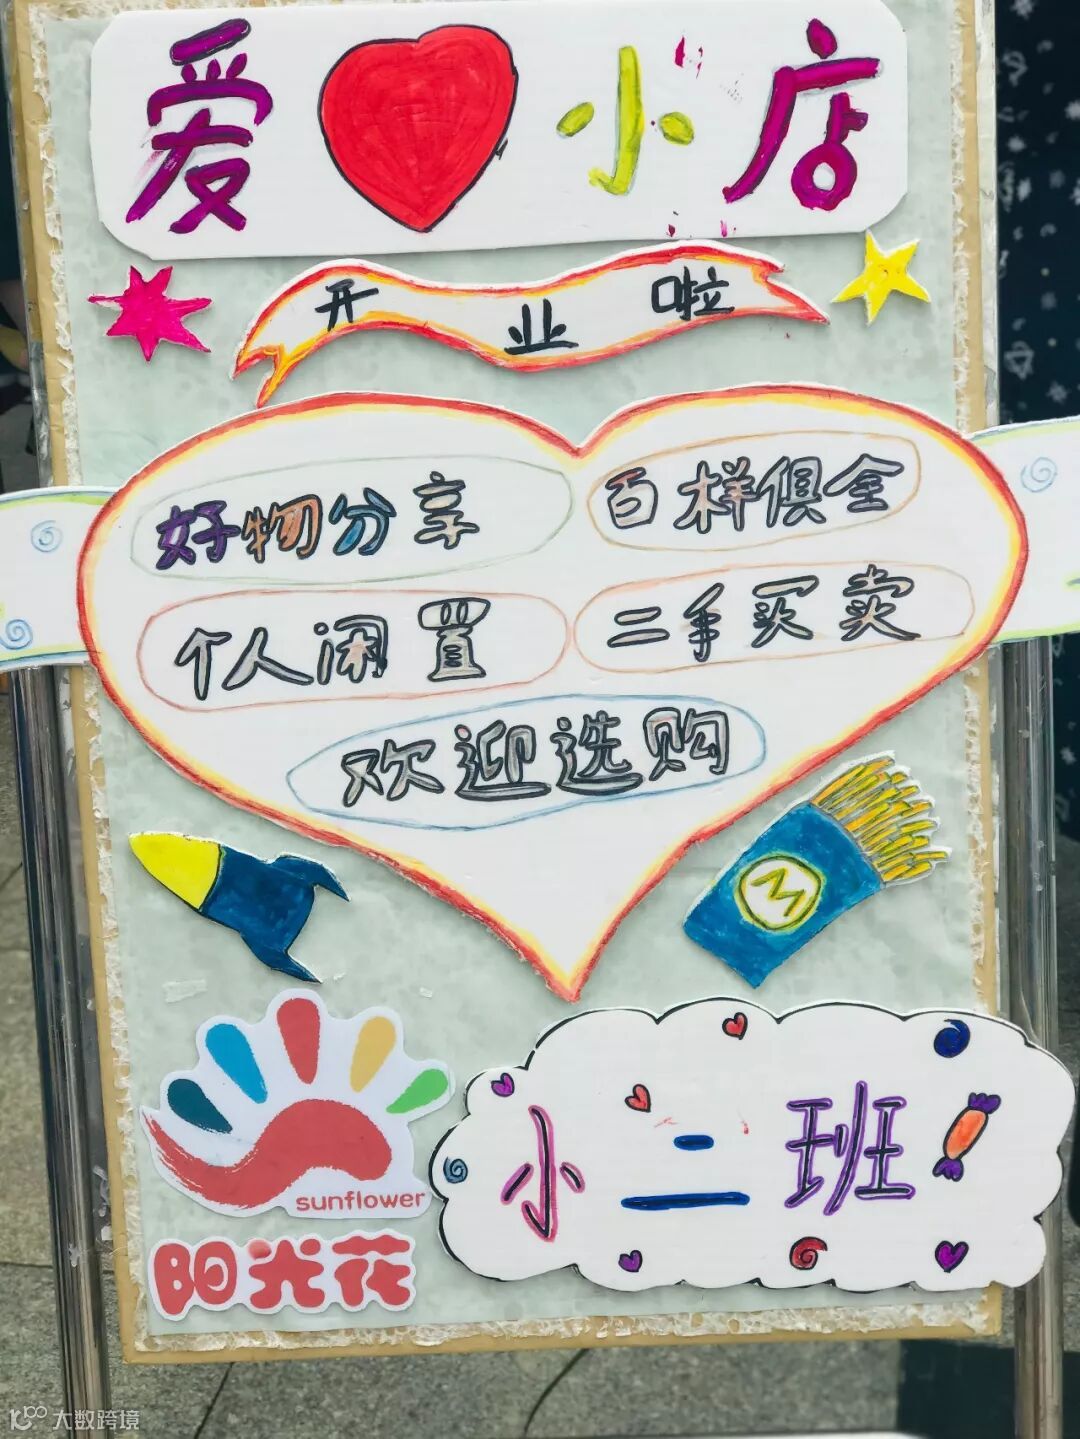 爱小店
开业啦
好物分享
百样俱全
个人闲置
二手买卖
欢迎选购
M
sunflower
阳光花
小二班
大数跨境